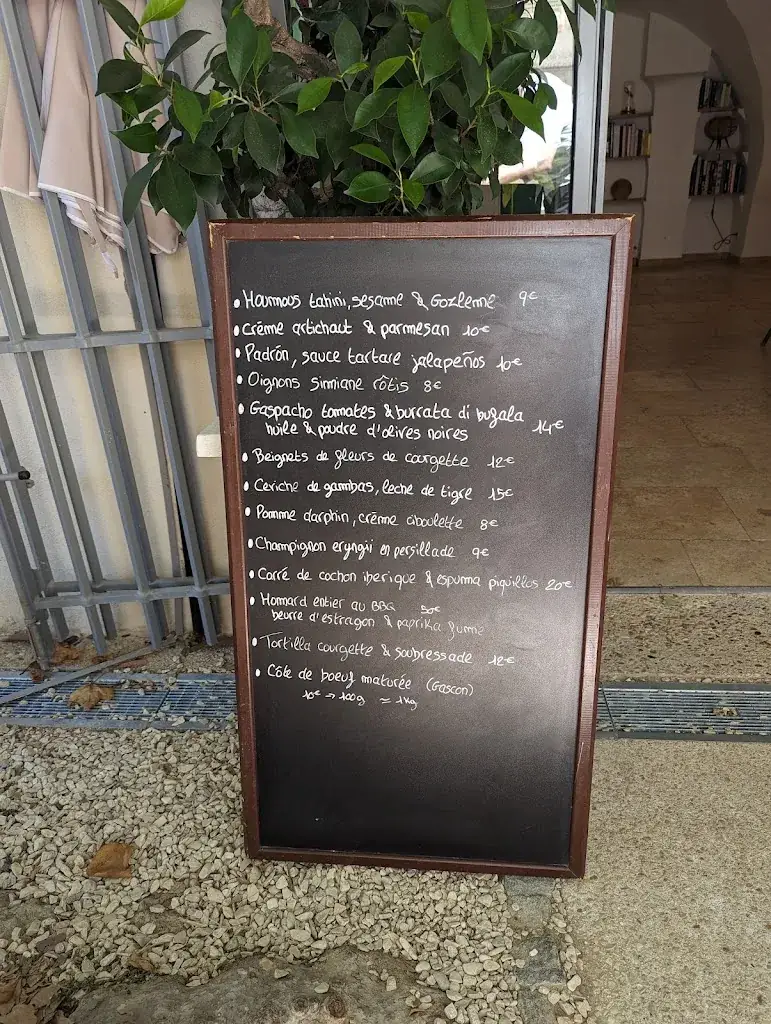 • Houmous tahini, sesame & Gozleme 9€
• Crème artichaut & parmesan 10€
• Padrón, sauce tartare jalapeños 10€
• Oignons simiane rôtis 8€
• Gaspacho tomates & burrata di bugala
huile & poudre d'olives noires 14€
• Beignets de fleurs de courgette 12€
• Ceviche de gambas, leche de tigre 15€
• Pomme darphin, crème ciboulette 8€
• Champignon eryngii en persillade 9€
• Carré de cochon iberique & espuma piquillos 20€
• Homard entier au BBQ 50€
beurre d'estragon & paprika fumé
• Tortilla courgette & soubressade 12€
• Côte de boeuf maturée (Gascon)
10€ → 100g = 1kg